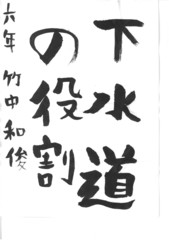 下水道
の役割
六年 竹中和俊